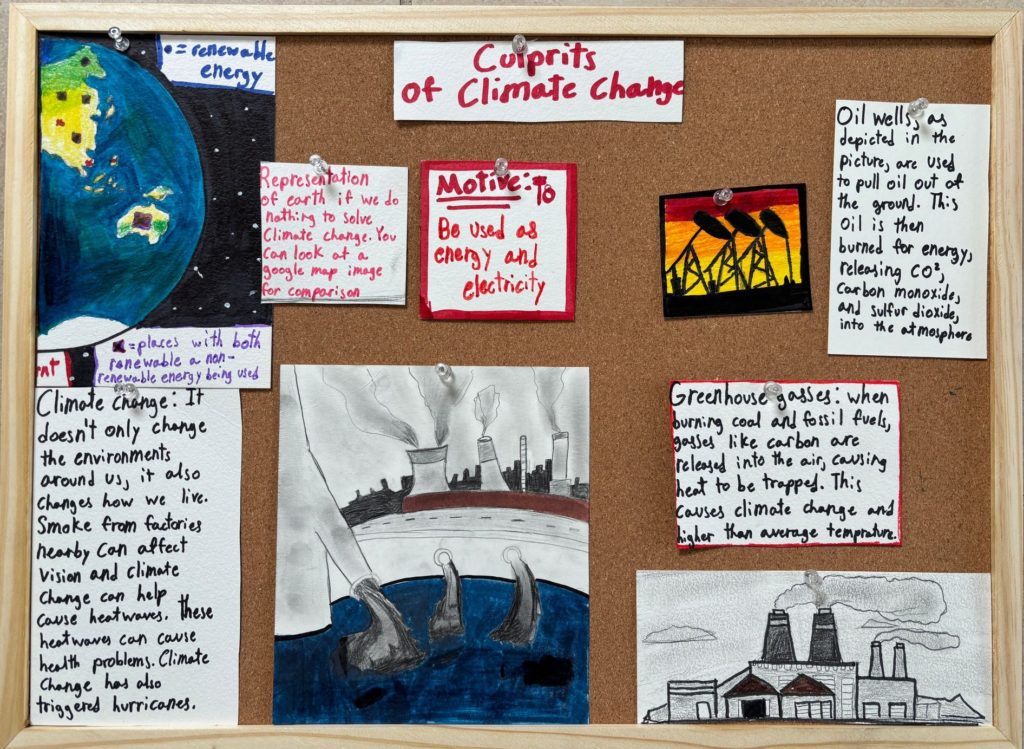 Culprits
of Climate Change
•= renewable
energy
Representation
of earth if we do
nothing to solve
Climate change. You
Can look at a
google map image
for comparison
Motive: To
Be used as
energy and
electricity
Oil wells, as
depicted in the
picture, are used
to pull oil out of
the ground. This
Oil is then
burned for energy,
releasing CO²,
Carbon monoxide,
and sulfur dioxide,
into the atmosphere
nt
=places with both
renewable a non-
renewable energy being used
Climate change: It
doesn't only change
the environments
around us, it also
changes how we live.
Smoke from factories
nearby Can affect
vision and climate
Change can help
Cause heatwaves. These
heatwaves can cause
health problems. Climate
Change has also
triggered hurricanes.
Greenhouse gasses: when
burning coal and fossil fuels,
gasses like carbon are
released into the air, causing
heat to be trapped. This
causes climate change and
higher than average temprature.